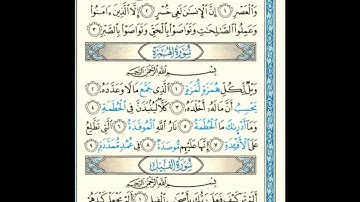 وَالْعَصْرِ ۝١ إِنَّ الْإِنسَٰنَ لَفِي خُسْرٍ ۝٢ إِلَّا الَّذِينَ ءَامَنُوا
وَعَمِلُوا الصَّٰلِحَٰتِ وَتَوَاصَوْا بِالْحَقِّ وَتَوَاصَوْا بِالصَّبْرِ ۝٣
سُورَةُ الْهُمَزَةِ
بِسْمِ اللَّهِ الرَّحْمَٰنِ الرَّحِيمِ
وَيْلٌ لِّكُلِّ هُمَزَةٍ لُّمَزَةٍ ۝١ الَّذِي جَمَعَ مَالًا وَعَدَّدَهُ ۝٢
يَحْسَبُ أَنَّ مَالَهُ أَخْلَدَهُ ۝٣ كَلَّا لَيُنبَذَنَّ فِي الْحُطَمَةِ ۝٤
وَمَا أَدْرَىٰكَ مَا الْحُطَمَةُ ۝٥ نَارُ اللَّهِ الْمُوقَدَةُ ۝٦ الَّتِي تَطَّلِعُ
عَلَى الْأَفْـِٔدَةِ ۝٧ إِنَّهَا عَلَيْهِم مُّؤْصَدَةٌ ۝٨ فِي عَمَدٍ مُّمَدَّدَةٍ ۝٩
سُورَةُ الْفِيلِ
بِسْمِ اللَّهِ الرَّحْمَٰنِ الرَّحِيمِ
أَلَمْ تَرَ كَيْفَ فَعَلَ رَبُّكَ بِأَصْحَٰبِ الْفِيلِ ۝١ أَلَمْ يَجْعَلْ كَيْدَهُمْ